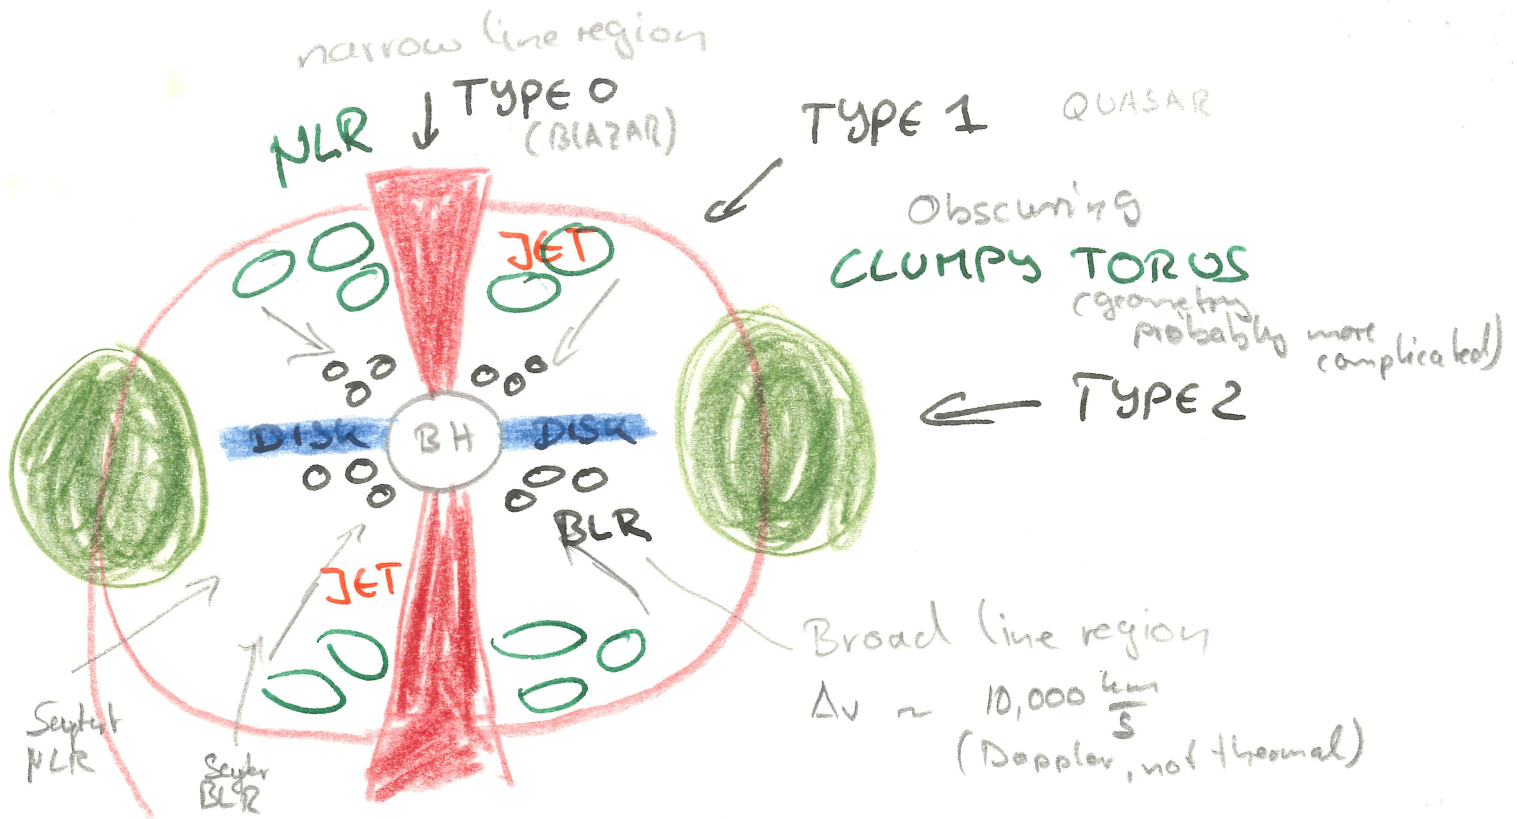 narrow line region
TYPE 0
(BLAZAR)
NLR
TYPE 1
QUASAR
JET
Obscuring
CLUMPY TORUS
(geometry
probably more
complicated)
TYPE 2
DISK
BH
DISK
BLR
JET
Broad line region
Δv ~ 10,000 km/s
(Doppler, not thermal)
NLR
BLR